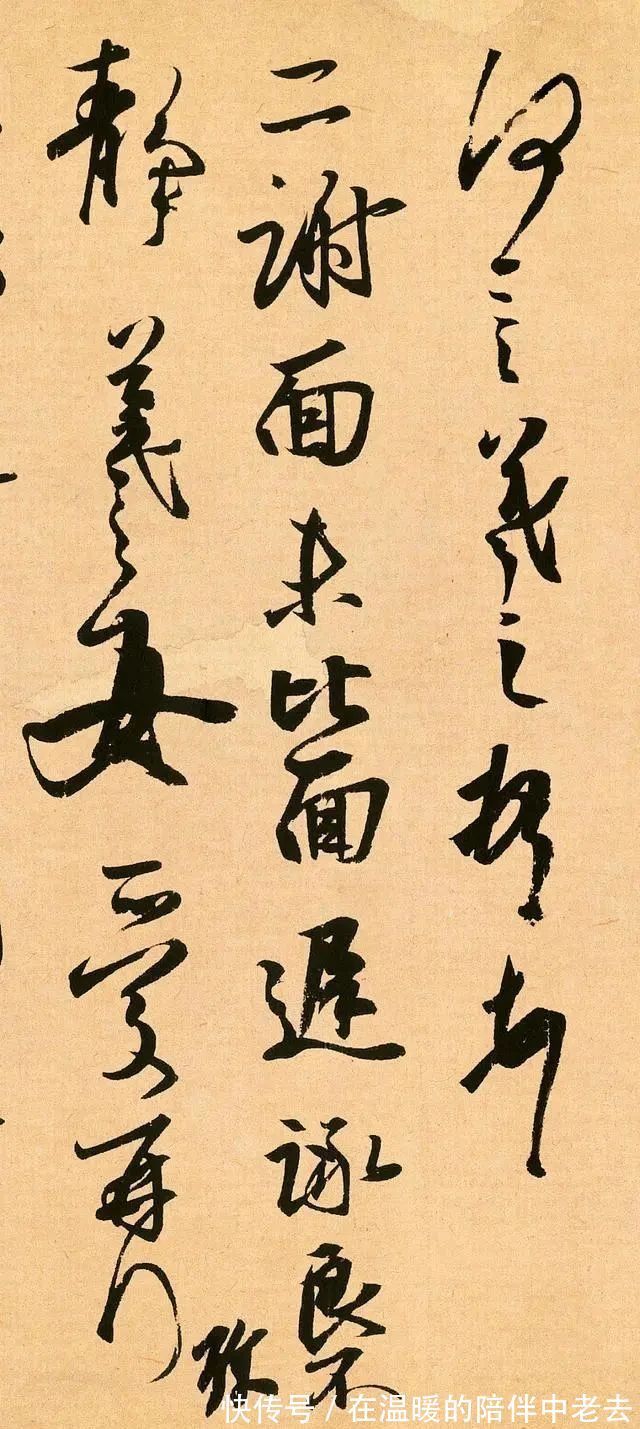 何言羲之頓首
二謝面未比面遲詠良不
珍
靜羲之女愛再拜
快传号/在温暖的陪伴中老去